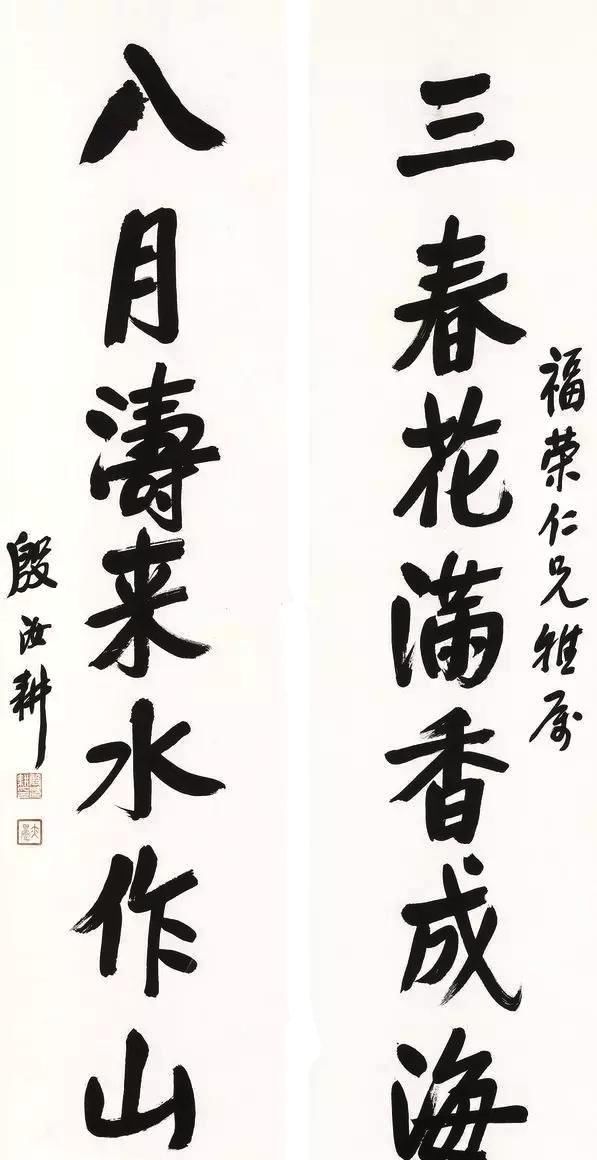 福荣仁兄雅属
三春花满香成海
八月濤来水作山
殷汝耕